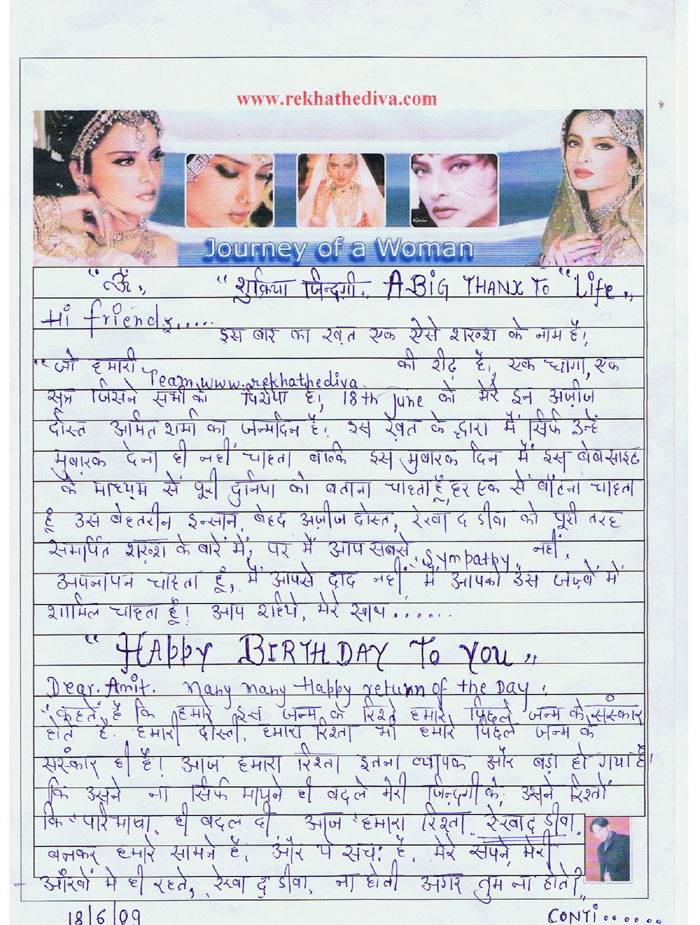 www.rekhathediva.com
Journey of a Woman
"ॐ,, "शुक्रिया ज़िन्दगी. A BIG THANX TO "Life,,
Hi friends.....
इस बार का ख़त एक ऐसे शख़्श के नाम है!
"जो हमारी Team, www.rekhathediva की रीढ़ है, एक धागा, एक
सूत्र जिसने सभी को पिरोया है, 18th June को मेरे इन अज़ीज
दोस्त अमित शर्मा का जन्मदिन है! इस ख़त के द्वारा मैं सिर्फ उन्हें
मुबारक देना ही नहीं चाहता बल्कि इस मुबारक दिन में इस वेबसाइट
के माध्यम से पूरी दुनिया को बताना चाहता हूँ, हर एक से बाँटना चाहता
हूँ उस बेहतरीन इन्सान, बेहद अज़ीज दोस्त, रेखा द डीवा को पूरी तरह
समर्पित शख़्श के बारे में, पर मैं आप सबसे, Sympathy, नहीं,
अपनापन चाहता हूँ, मैं आपसे दाद नहीं मैं आपको उस जज़्बें में
शामिल चाहता हूँ! आप रहिये, मेरे साथ......
"HAPPY BIRTHDAY To you,,
Dear. Amit. Many many Happy return of the Day!
"कहतें है कि हमारे इस जन्म के रिश्ते हमारे पिछले जन्म के संस्कार
होते है. हमारी दोस्ती, हमारा रिश्ता भी हमारे पिछले जन्म के
संस्कार ही है! आज हमारा रिश्ता इतना व्यापक और बड़ा हो गया है!
कि उसने ना सिर्फ मायने ही बदले मेरी ज़िन्दगी के, उसने रिश्तों
कि परिभाषा, ही बदल दी, आज हमारा रिश्ता रेखा द डीवा,
बनकर हमारे सामने है, और ये सच है, मेरे सपने, मेरी
आँखों में ही रहते, रेखा द डीवा, ना होती अगर तुम ना होते!,
18/6/09
CONTI......